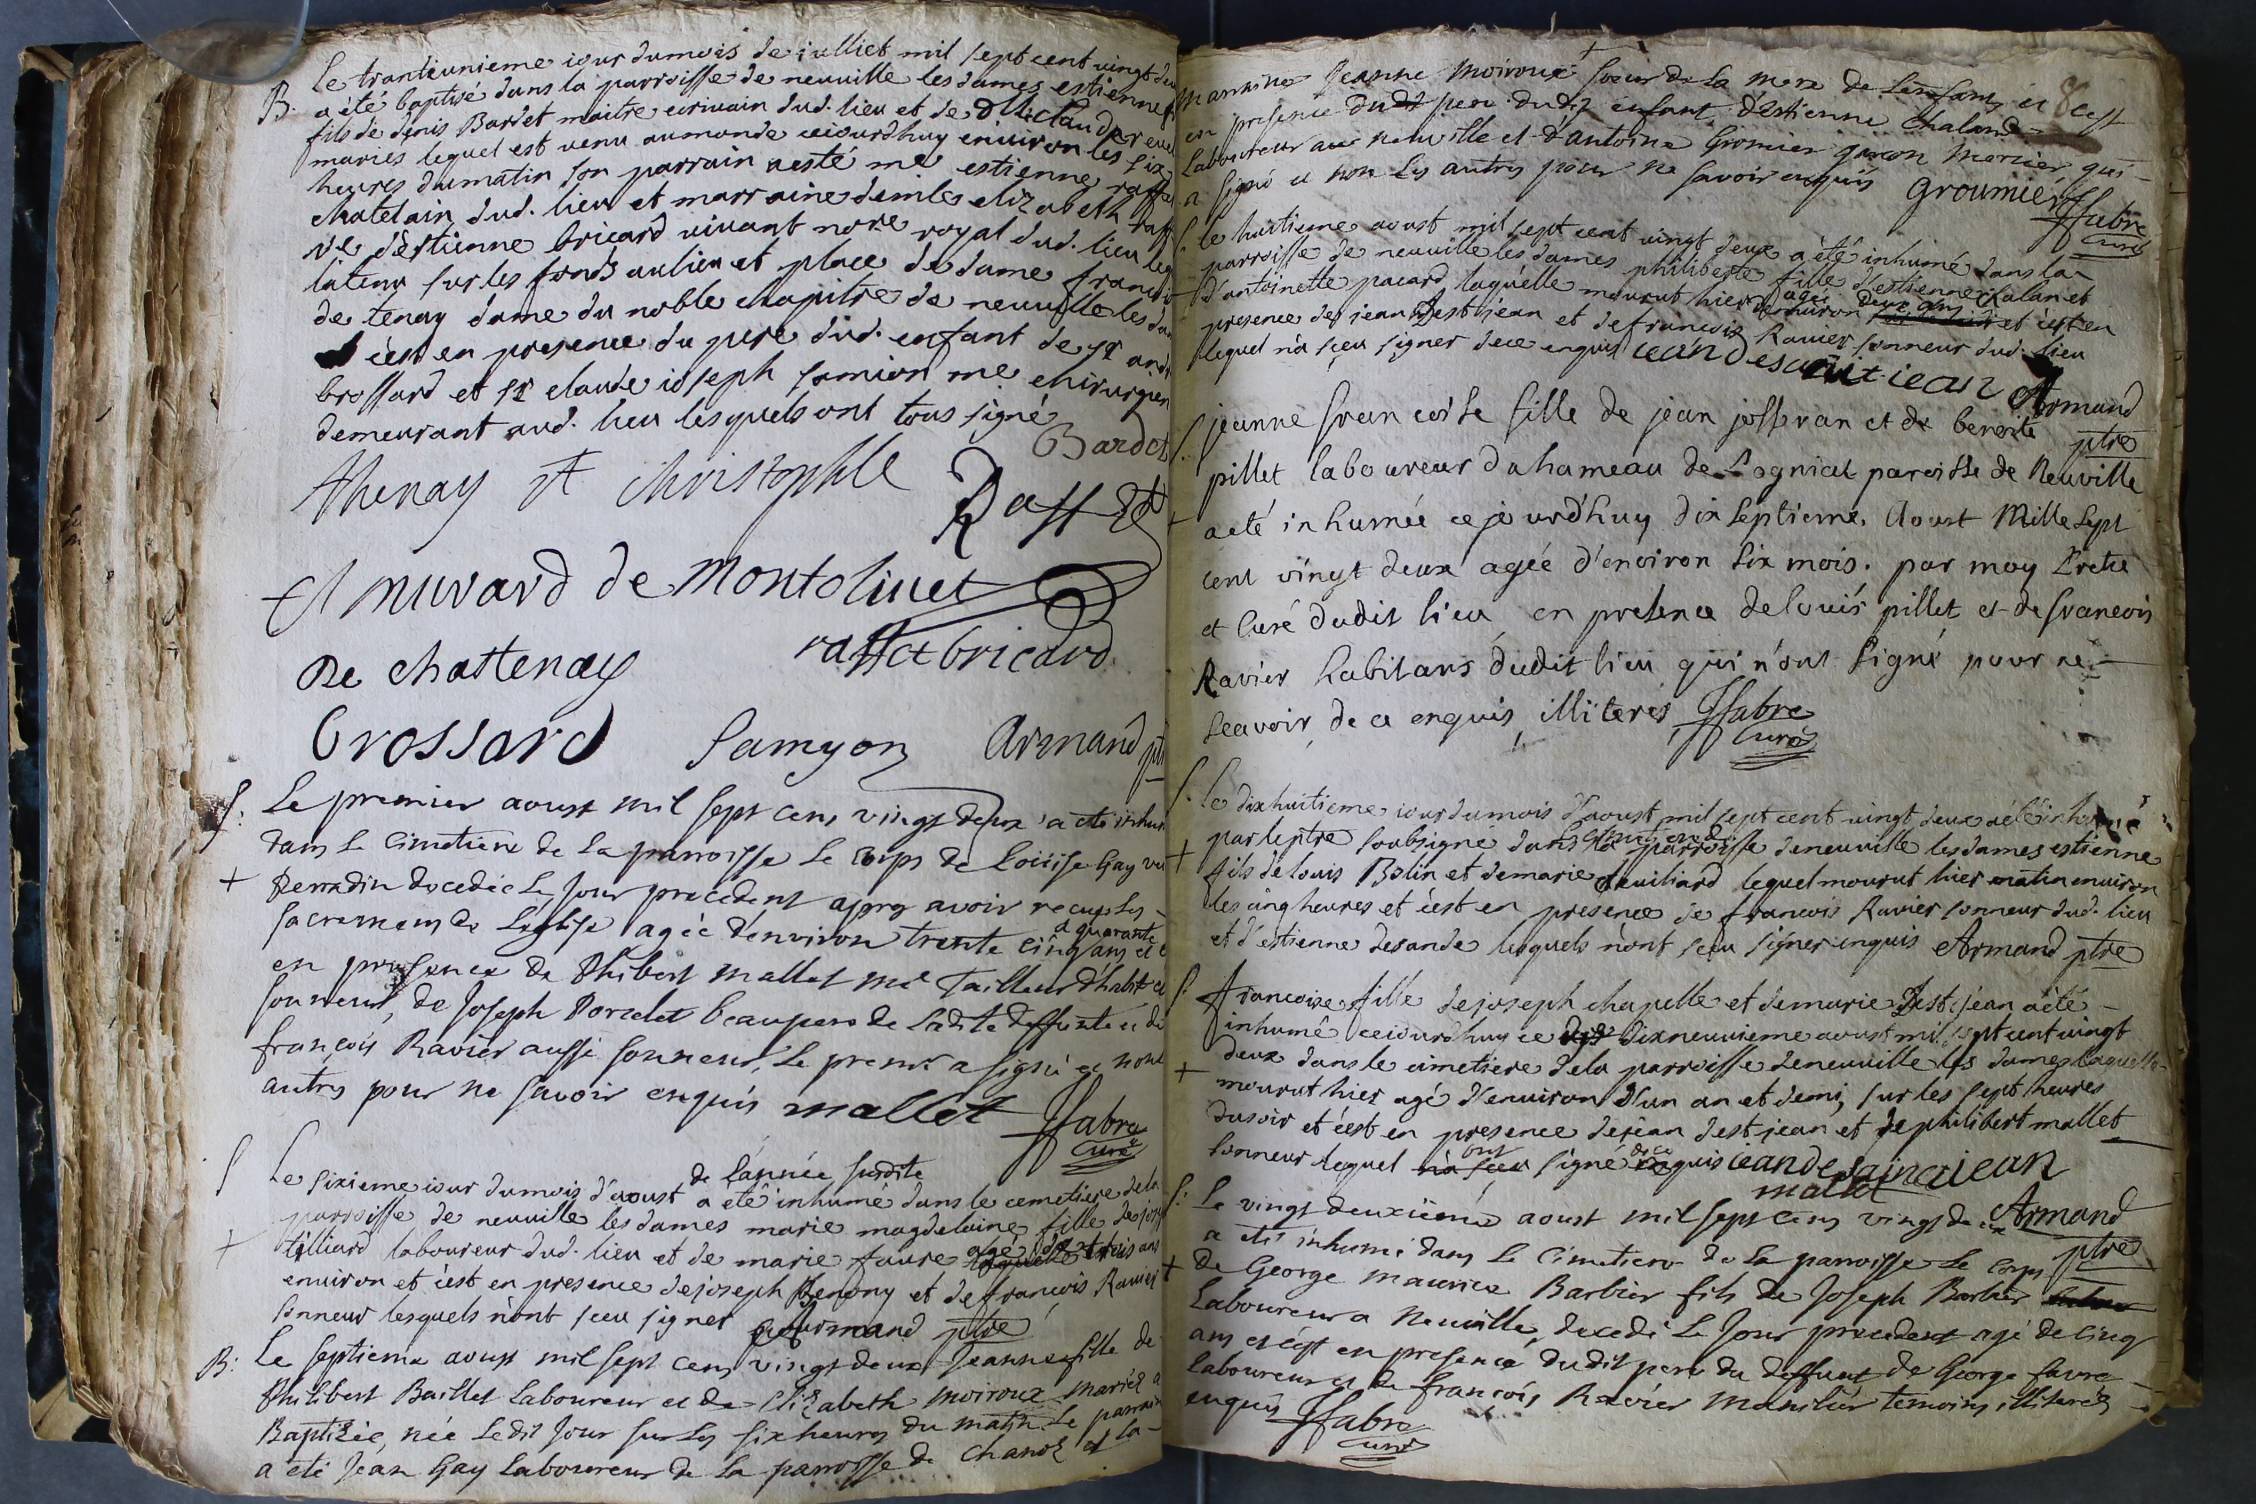 B. Le tranteunieme iour du mois de iulliet mil sept cent vingt deu
a été baptisé dans la parroisse de neuville les dames estienne
fils de denis Bardet maitre ecrivain dud. lieu et de dlle claudx
maries lequel est venu au monde ceiourdhuy environ les six
heures du matin son parrain aesté me estienne raffet
chatelain dud. lieu et marraine demlle elizabeth raff
ve d'estienne bricard vivant nore royal dud. lieu leq
la tenu sur les fonds au lieu et place de dame francoi
de tenay dame du noble chapitre de neuville les da
c'est en presence du pere dud. enfant de sr and
brossard et sr claude ioseph samion me chirurgien
demeurant aud. lieu lesquels ont tous signé
Bardet
thenay st christophle Raffet
amurard de montolivet
raffet bricard
De chattenay
brossard Samyon Armand ptr
S. Le premier aoust mil sept cens vingt deux a eté inhum
dans Le Cimetiere de La parroisse Le Corps de Loüise Gay ve
+ Perradin decedée Le Jour precedent apres avoir recu Les
sacremens de L'eglise agée d'environ trente cinq a quarante ans et c
en presence de Phibert mallet me Tailleur d'habit et
sonneur, de Joseph Porcelet beaupere de Ladite deffunte et de
françois Ravier aussi sonneur, Le premr a signé et non L
autres pour ne savoir enquis mallet
Jfabre
Curé
S Le sixieme iour du mois d'aoust de l'année susdite a eté inhumé dans le cemetiere de la
parroisse de neuville les dames marie magdelaine fille de jos
+ tilliard laboureur dud. lieu et de marie faure agé de trois ans
environ et c'est en presence de joseph Benony et de françois Ravier
sonneur lesquels n'ont sceu signer Armand ptre
B: Le septieme aoust mil sept cens vingt deux Jeanne fille de
Philibert Baillet Laboureur et de Elizabeth moiroux mariez a
Baptizée, née Ledit Jour sur Les six heures du matin Le parrain
a eté Jean Gay Laboureur de La parroisse de Chanoz et la
8
marraine Jeanne Moiroux soeur de La mere de L'enfant et c'est
en presence dudit pere dudit enfant, d'Estienne Chaland
Laboureur aud neuville et d'antoine Gromier garcon Mercier qui
a signé et non Les autres pour ne savoir enquis Groumier
Jfabre
Curé
S. Le huitieme aoust mil sept cent vingt deux a été inhumé dans la
parroisse de neuville les dames philiberte fille d'estienne Chalan et
d'antoinette pacard laquelle mourut hier agée d'environ deux ans et c'est en
presence de jean Dest jean et de francois Ravier sonneur dud. lieu
lequel n'a sçeu signer de ce enquis iean desaint iean Armand
ptre
S. jeanne francoise fille de jean josseran et de benoite
pillet laboureur du hameau de Lognial paroisse de Neuville
+ a eté inhumée ce jourd'huy dix septieme Aoust Mille sept
cent vingt deux agée d'environ six mois. par moy Pretre
et Curé dudit lieu en presence de loüis pillet et de francois
Ravier habitans dudit lieu qui n'ont signé pour ne
sçavoir de ce enquis illiterés Jfabre
Curé
S. Le dixhuitieme iour du mois d'aoust mil sept cent vingt deux a été inhumé
+ par le ptre soubsigné dans la parroisse de neuville les dames estienne
fils de louis Bolin et de marie lequel mourut hier matin environ
les cinq heures et c'est en presence de francois Ravier sonneur dud. lieu
et d'estienne desande lesquels n'ont sceu signer enquis Armand ptre
S. francoise fille de joseph chapelle et de marie Dest jean a été
inhumé ceiourdhuy ce dixneuvieme aoust mil sept cent vingt
deux dans le cimetiere de la parroisse de neuville les dames laquelle
+ mourut hier agé d'environ d'un an et demi, sur les sept heures
du soir et c'est en presence de jean dest jean et de philibert mallet
sonneur lequel ont signé de ce enquis iean desainct iean
mallet
Armand
ptre
S. Le vingt deuxieme aoust mil sept cens vingt deux
a eté inhumé dans Le Cimetiere de La parroisse Le Corps
+ de George Maurice Barbier fils de Joseph Barbier
Laboureur a Neuville, decedé Le Jour precedent agé de Cinq
ans et c'est en presence dudit pere du deffunt de George favre
Laboureur et de françois Ravier temoins illiterés
enquis Jfabre
Curé